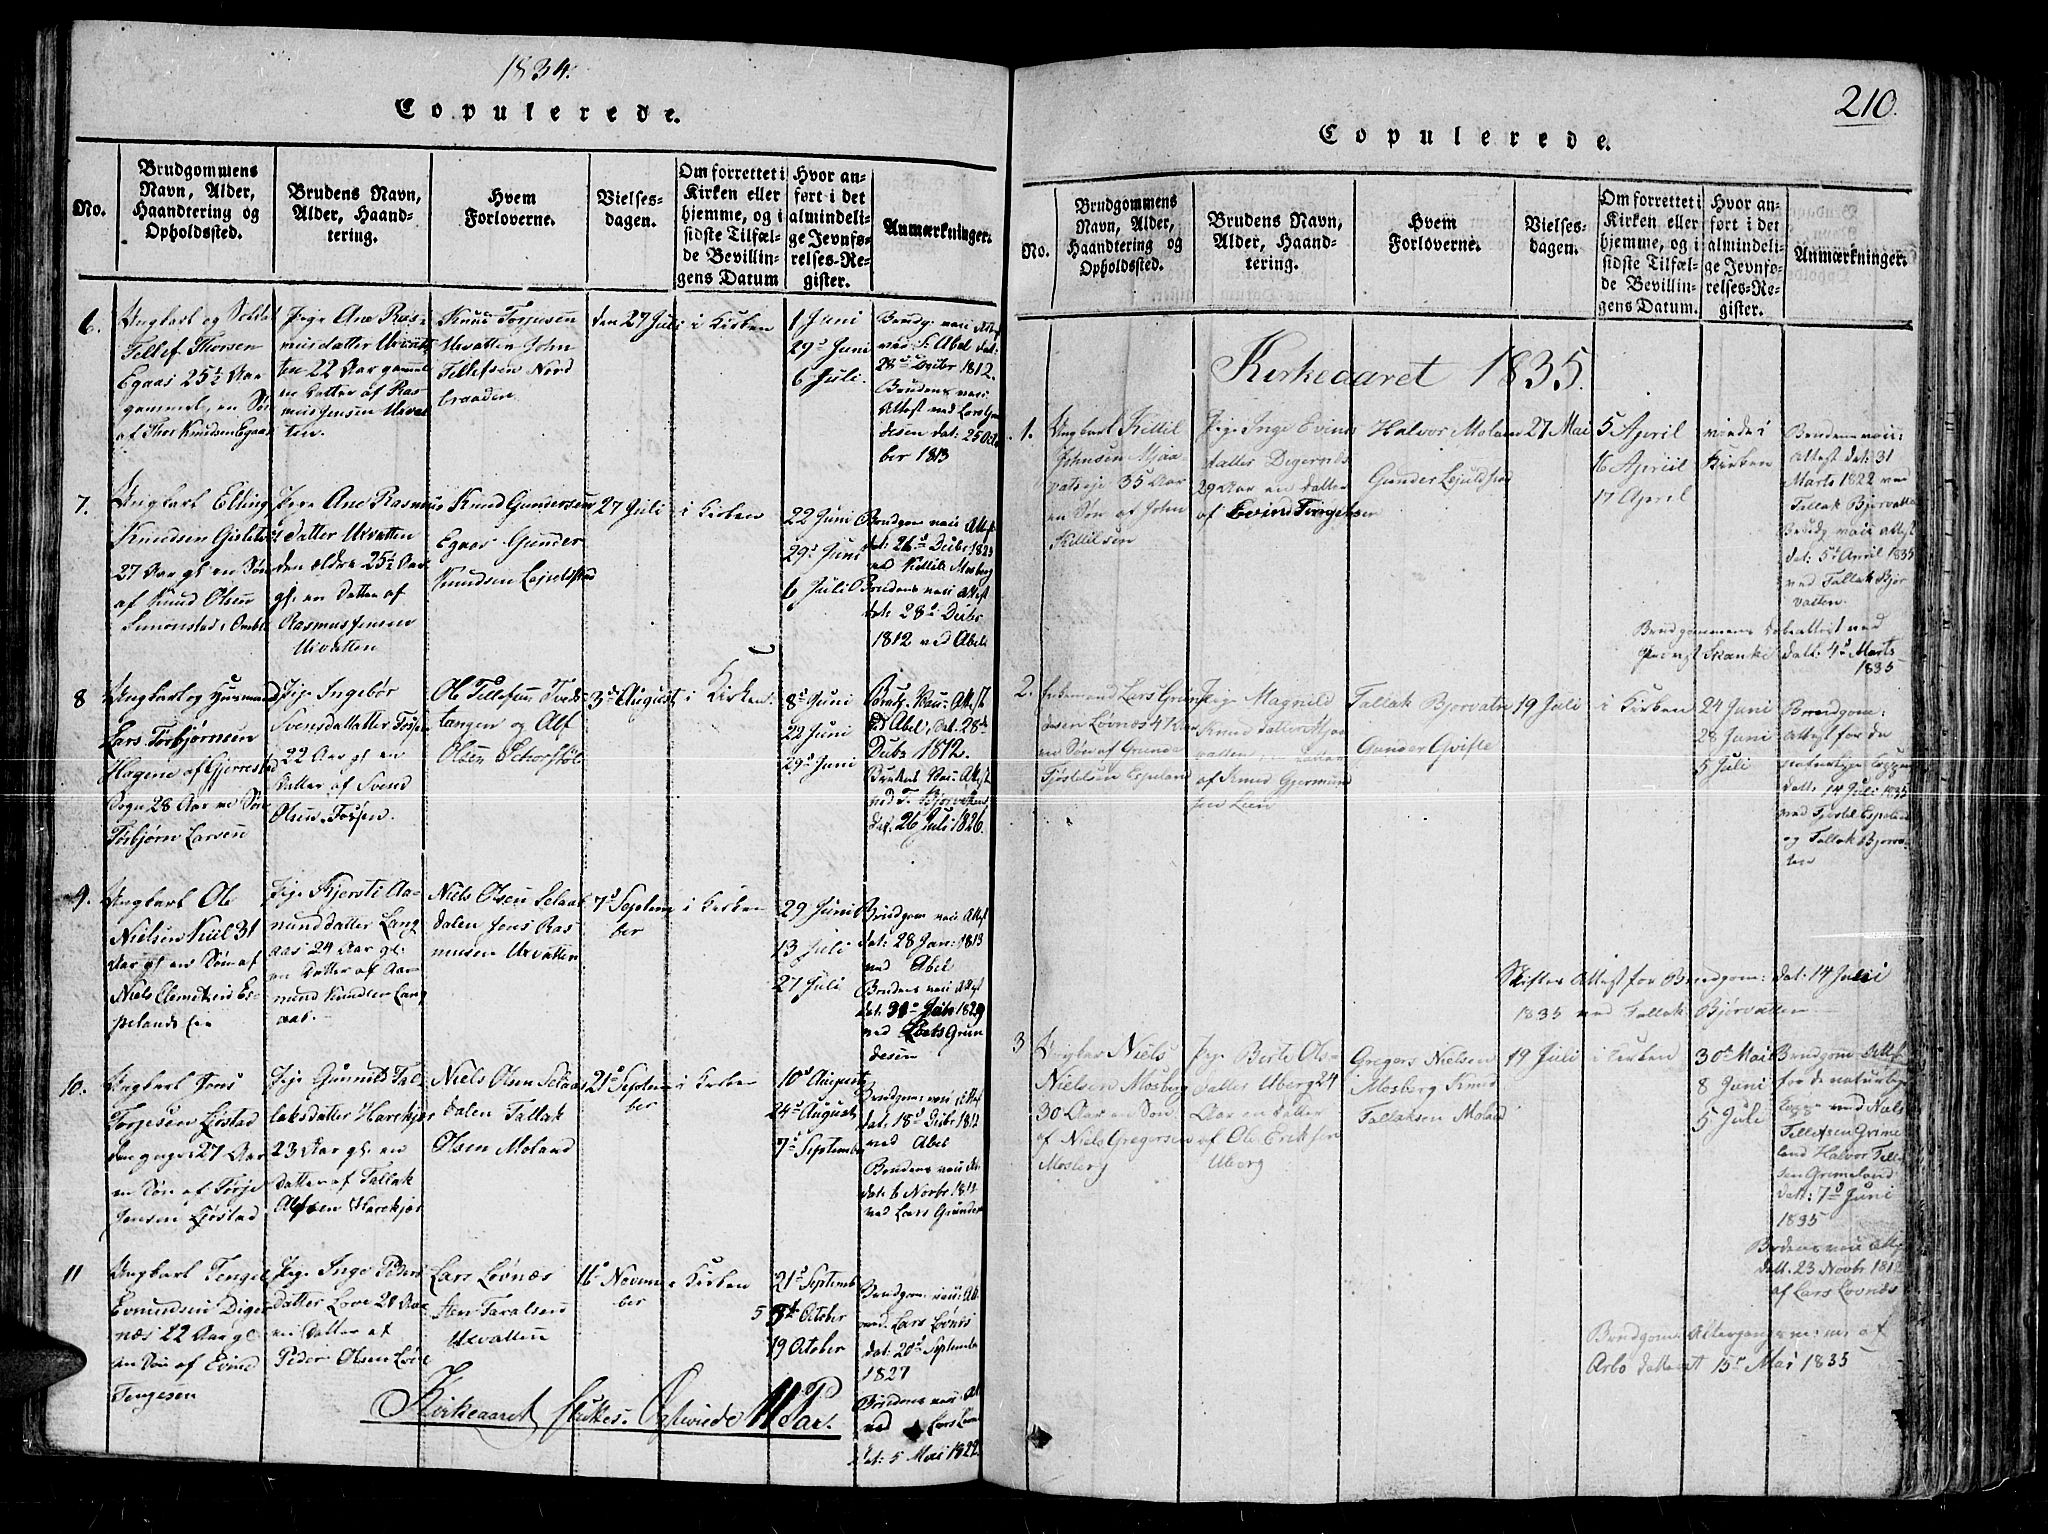 1834.
Copulerede.
No.
Brudgommens Navn, Alder, Haandtering og Opholdssted.
Brudens Navn, Alder, Haandtering.
Hvem Forloverne.
Vielsesdagen.
Om forrettet i Kirken eller hjemme, og i sidste Tilfælde Bevillingens Datum
Hvor anført i det almindelige Jevnførelses-Register.
Anmærkninger.
6.
Ungkarl og Soldat
Tellef Thorsen
Egaas 25½ Aar
gammel, en Søn
af Thor Knudsen Egaas
Pige Ane Ras-
musdatter Urvat-
ten 22 Aar gammel
en Datter af Ras-
mus Jensen Urvat-
ten.
Knud Torjusen
Urvatten John
Tellefsen Nord
braaden
den 27 Juli
i Kirken
1 Juni
29 Juni
6 Juli.
Brudg. vacc: Attest
ved S. Abel dat:
28de Decbr 1812.
Brudens vacc:
Attest ved Lars Grun
desen dat: 25 Octo
ber 1813
7.
Ungkarl Elling
Knudsen
27 Aar gl: en Søn
af Knud Olsen
Simonstad i Omblie
Pige Ane Rasmus
datter Urvatten
den ældre 25½ Aar
gl: en Datter af
Rasmus Jensen
Urvatten
Knud Gundersen
Egaas Gunder
Knudsen Lejulstad
27 Juli
i Kirken
22 Juni
29 Juni
6 Juli
Brudgom vacc: Attest
dat: 26 Decbr 1823
ved Kittil Mosberg
Brudens vacc: Attest
dat: 28 Decbr
1812 ved Abel
8
Ungkarl og Huusmand
Lars Torbjørnsen
Hagene af Gjerrestad
Sogn 28 Aar en Søn
Torbjørn Larsen
Pige Ingebør
Svensdatter
22 Aar gl en
Datter af Svend
Olsen
Ole Tellefsen Tveds
tangen og Alf
Olsen
3 August
i Kirken
8 Juni
22 Juni
29 Juni
Brudg. Vacc: Attest
ved Abel, dat. 28de
Decbr 1812.
Brudens Vacc: Attest
ved T. Bjorvatten
dat. 26 Juli 1826.
9.
Ungkarl Ole
Nielsen 31
Aar gl en Søn af
Niels Clemetsen Es-
pelands Eie
Pige Kjersti Aa-
mundsdatter Lang
aas 24 Aar gl:
en Datter af Aa-
mund Knudsen Lang
aas.
Niels Olsen Selaas
dalen Jens Ras
musen Urvatten
7 Septem
ber
i Kirken
29 Juni
13 Juli
27 Juli
Brudgom vacc: Attest
dat: 28 Jan: 1813
ved Abel
Brudens vacc: Attest
dat: Juli 1829
ved Lars Grun
desen
10.
Ungkarl Jens
Torjesen Ljøstad
27 Aar
en Søn af Torje
Jensen Ljøstad
Pige Gunnild Tal-
laksdatter Harekjær
23 Aar gl: en
datter af Tallak
Alfsen Harekjær
Niels Olsen Selaas
dalen Tallak
Olsen Moland
21 Septem
ber
i Kirken
10 August
24 August
7 September
Brudgom: vacc: Attest
dat: 18 Decbr 1812
ved Abel
Brudens vacc: At:
dat: 6 Novbr 1811
ved Lars Grunde
11
Ungkarl Tengel
Evindsen Diger
næs 22 Aar gl
en Søn af Evind
Tengesen
Pige Inge Peders
datter Løve 21 Aar
en Datter af
Peder Olsen Løve
Lars Lovnæs
Jens Taralsen
Urvatten
16 Novem
ber
i Kirken
21 Septemb
5 October
19 October
Brudgom: vacc: At
ved Lars Lovnes
dat: 20 Septembe
1827
Brudens vacc: At
ved Lars Lovn
dat: 5 Mai 1822
Kirkeaaret sluttes. Ægteviede 11 Par.
210.
Copulerede.
No.
Brudgommens Navn, Alder, Haandtering og Opholdssted.
Brudens Navn, Alder, Haandtering.
Hvem Forloverne.
Vielsesdagen.
Om forrettet i Kirken eller hjemme, og i sidste Tilfælde Bevillingens Datum.
Hvor anført i det almindelige Jevnførelses-Register.
Anmærkninger.
Kirkeaaret 1835.
1.
Ungkarl Kittil
Johnsen Mjaa-
vatseje 35 Aar
en Søn af John
Kittilsen
Pige Inge Evinds
datter Degernæs
29 Aar en datter
af Evind Tengelsen
Halvor Moland
Gunder Lejulstad
27 Mai
5 April
16 April
17 April
viede i
Kirken
Brudens vacc:
Attest dat: 31
Marts 1822 ved
Tallak Bjorvatten
Brudg vacc Attest
dat: 5 April 1835
ved Tallak Bjor
vatten.
Brudgommens Attest ved
Provst dat: 4 Marts
1835
2.
Enkemand Lars Grun
desen Lovnæs 41 Aar
en Søn af Grunde
Tjostelsen Espeland
Pige Magnild
Knudsdatter Mjaa
vatten en datter
af Knud Gjermund
sen Lien
Tallak Bjorvatn
Gunder Qvifte
19 Juli
i Kirken
24 Juni
28 Juni
5 Juli
Brudgom:
Attest for de
naturlige Kopper
dat: 14 Juli 1835
ved Tjostel Espeland
og Tallak Bjorva-
ten
Skiftes Attest for Brudgom: dat: 14 Juli
1835 ved Tallak Bjørvatten
3
Ungkar Niels
Nielsen Mosberg
30 Aar en Søn
af Niels Gregersen
Mosberg
Pige Berte Ols-
datter Uberg 24
Aar en datter
af Ole Eriksen
Uberg
Gregers Nielsen
Mosberg Knud
Tallaksen Moland
19 Juli
i Kirken
30 Mai
8 Juni
5 Juli
Brudgom Attest
for de naturlige
Kopper ved Niels
Tellefsen Grime
land Halvor Telle
sen Grimeland
datt: 7 Juni
1835
Brudens vacc Attest
dat: 23 Novbr 1812
af Lars Lovnæs
Brudgom: Altergangs af
Arbo datteret 15 Mai 1835